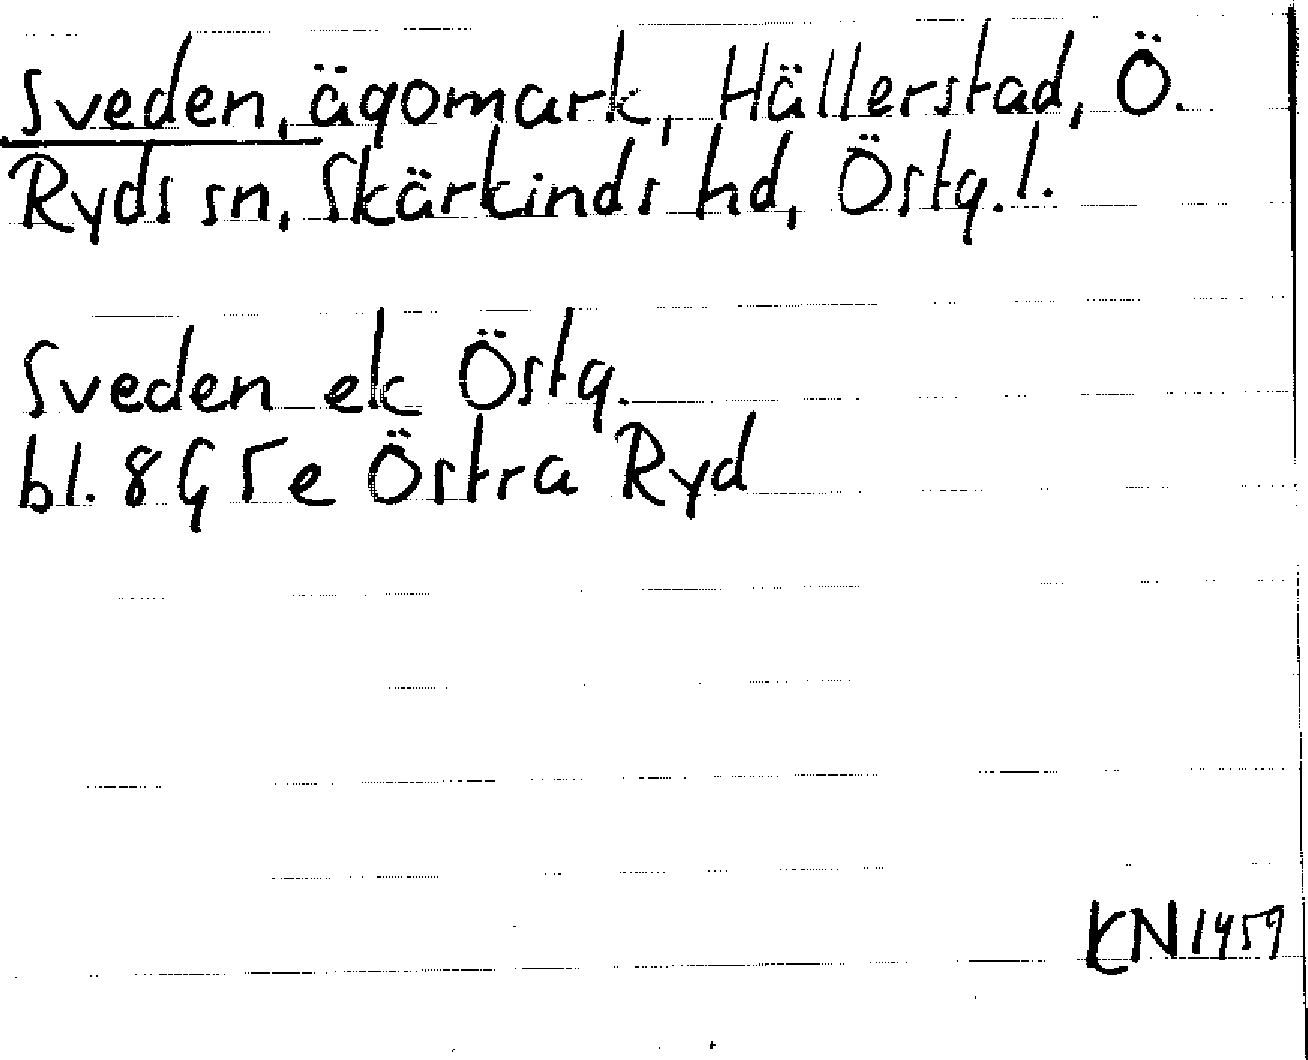 Sveden, ägomark, Hällerstad, Ö.
Ryds sn, Skärkinds hd, Östg.l.
Sveden ek Östg.
bl. 8G5e Östra Ryd
KN1459